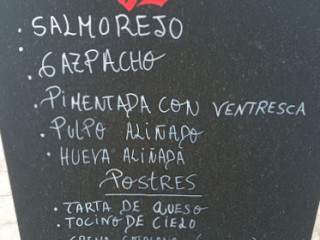 · SALMOREJO
· GAZPACHO
· PIMENTADA CON VENTRESCA
· PULPO ALIÑADO
· HUEVA ALIÑADA
POSTRES
· TARTA DE QUESO
· TOCINO DE CIELO